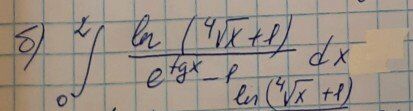 б) ∫₀² ln(⁴√x+1) / (e^tgx −1) dx
ln(⁴√x +1)